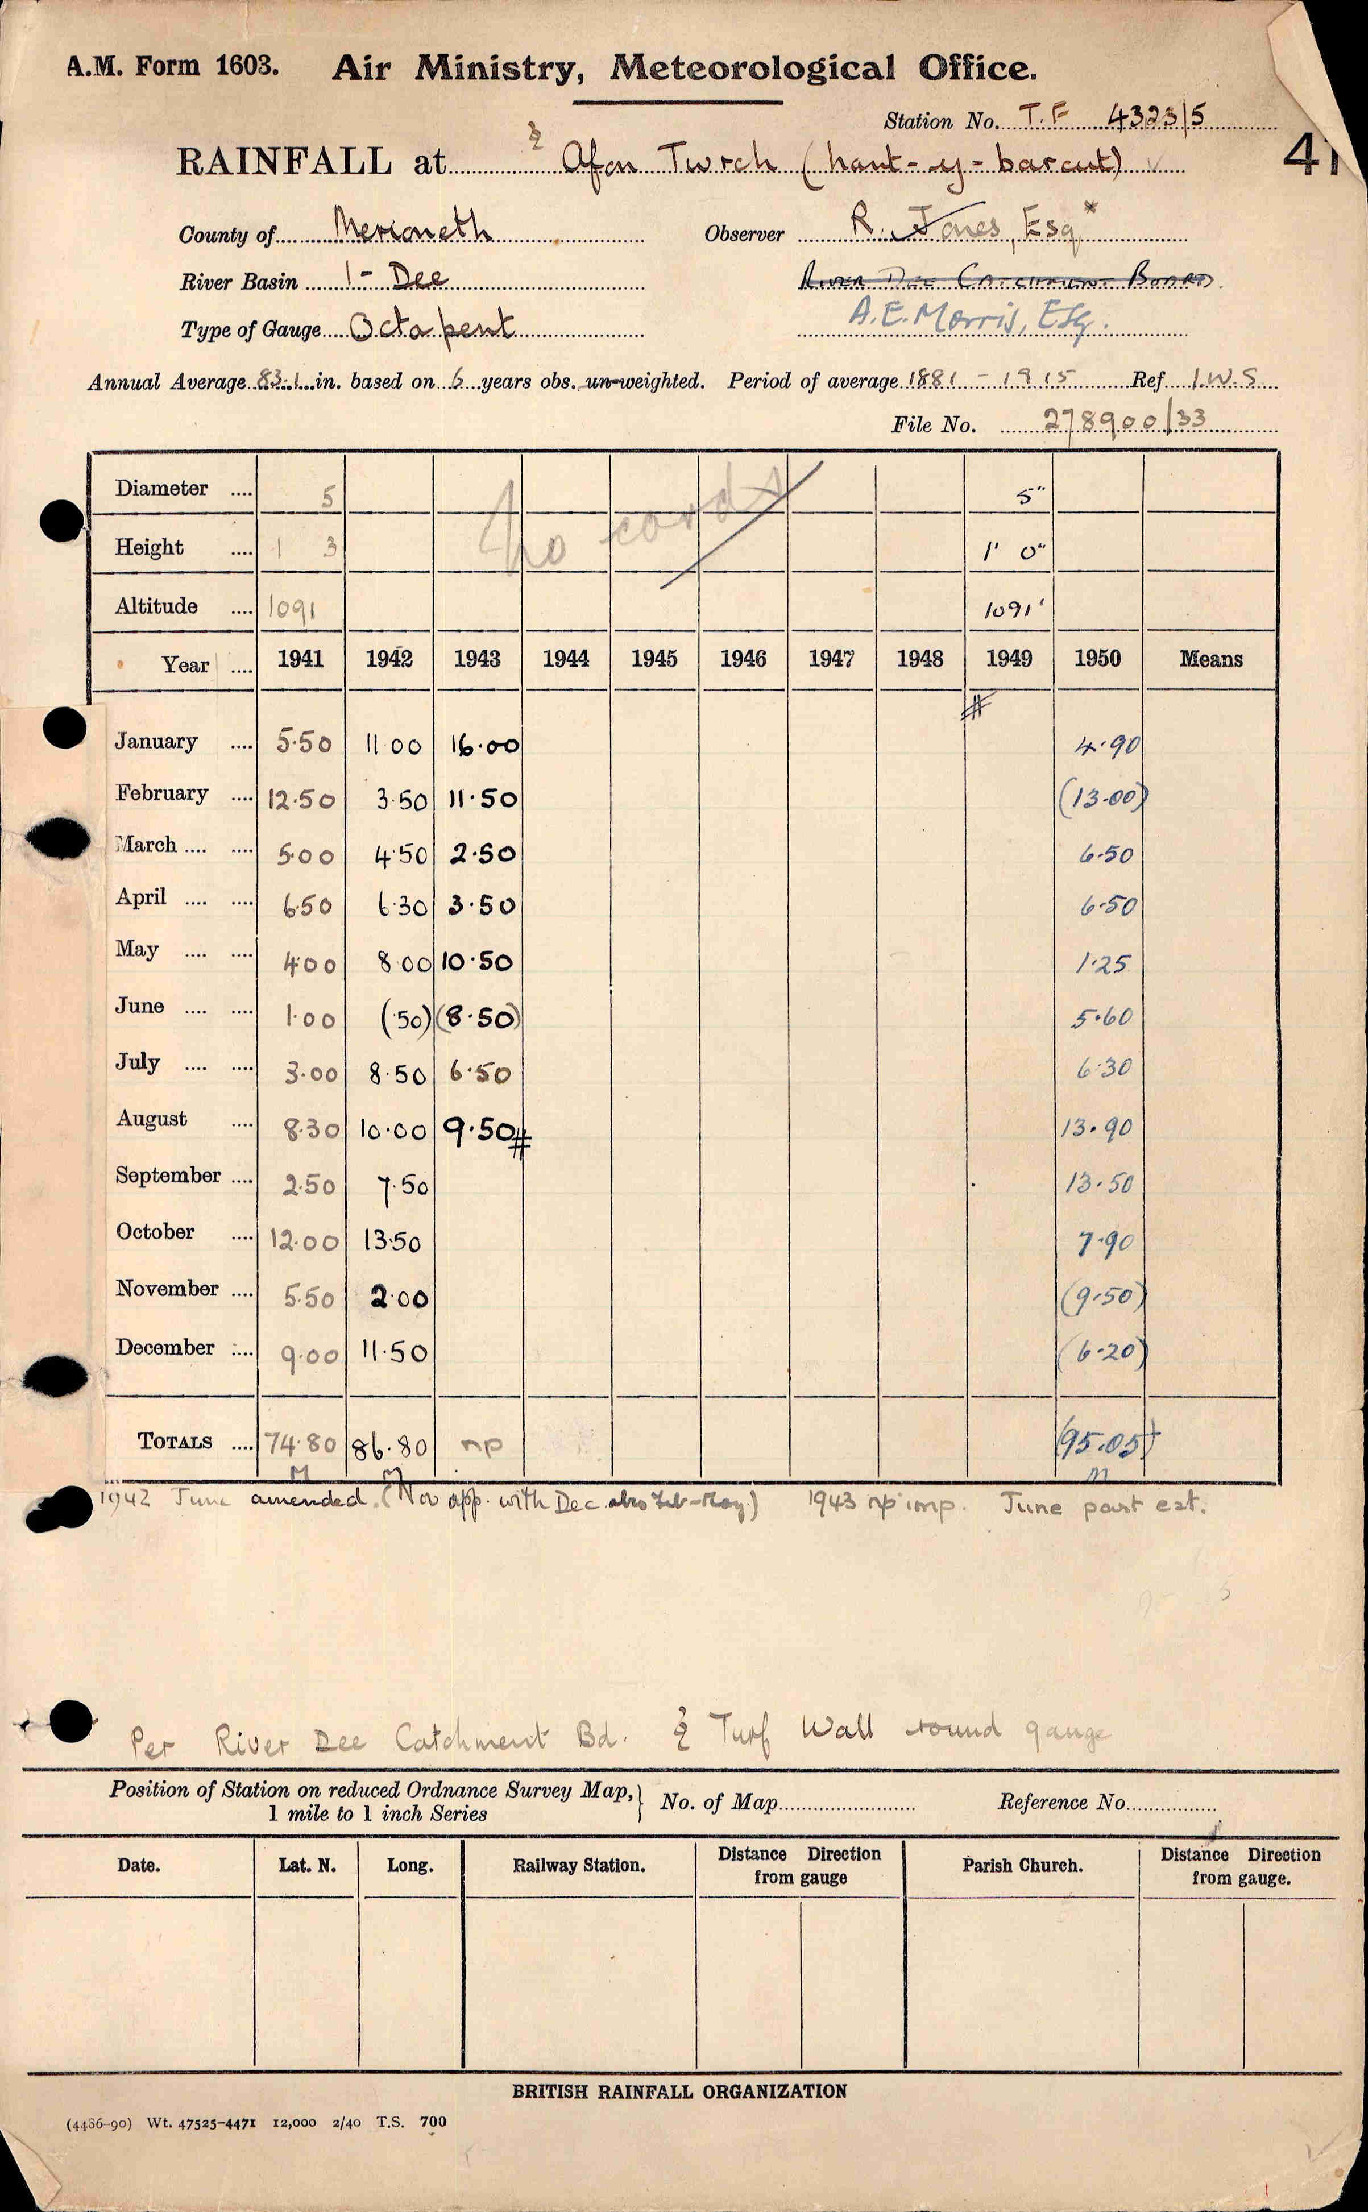 A.M. Form 1603. Air Ministry, Meteorological Office.
Station No. T.F 4323/5
41
RAINFALL at Afon Twrch (hant-y-barcut)
County of Merioneth Observer R. Jones, Esq *
River Basin 1 - Dee River Dee Catchment Board
Type of Gauge Octapent A.E. Morris, Esq.
Annual Average 83.1 in. based on 6 years obs. un-weighted. Period of average 1881 - 1915 Ref I.W.S
File No. 278900/33
Diameter .... 5 5"
no cards
Height .... 1 3 1' 0"
Altitude .... 1091 1091'
Year .... 1941 1942 1943 1944 1945 1946 1947 1948 1949 1950 Means
#
January .... 5.50 11.00 16.00 4.90
February .... 12.50 3.50 11.50 (13.00)
March .... .... 5.00 4.50 2.50 6.50
April .... .... 6.50 6.30 3.50 6.50
May .... .... 4.00 8.00 10.50 1.25
June .... .... 1.00 (.50) (8.50) 5.60
July .... .... 3.00 8.50 6.50 6.30
August .... 8.30 10.00 9.50# 13.90
September .... 2.50 7.50 13.50
October .... 12.00 13.50 7.90
November .... 5.50 2.00 (9.50)
December .... 9.00 11.50 (6.20)
TOTALS .... 74.80 86.80 np (95.05)†
M M M
1942 June amended. (Nov app. with Dec. also Feb-May) 1943 np imp. June part est.
Per River Dee Catchment Bd. Turf Wall round gauge
Position of Station on reduced Ordnance Survey Map,} No. of Map Reference No.
1 mile to 1 inch Series
Date. Lat. N. Long. Railway Station. Distance Direction from gauge Parish Church. Distance Direction from gauge.
BRITISH RAINFALL ORGANIZATION
(4486-90) Wt. 47525-4471 12,000 2/40 T.S. 700